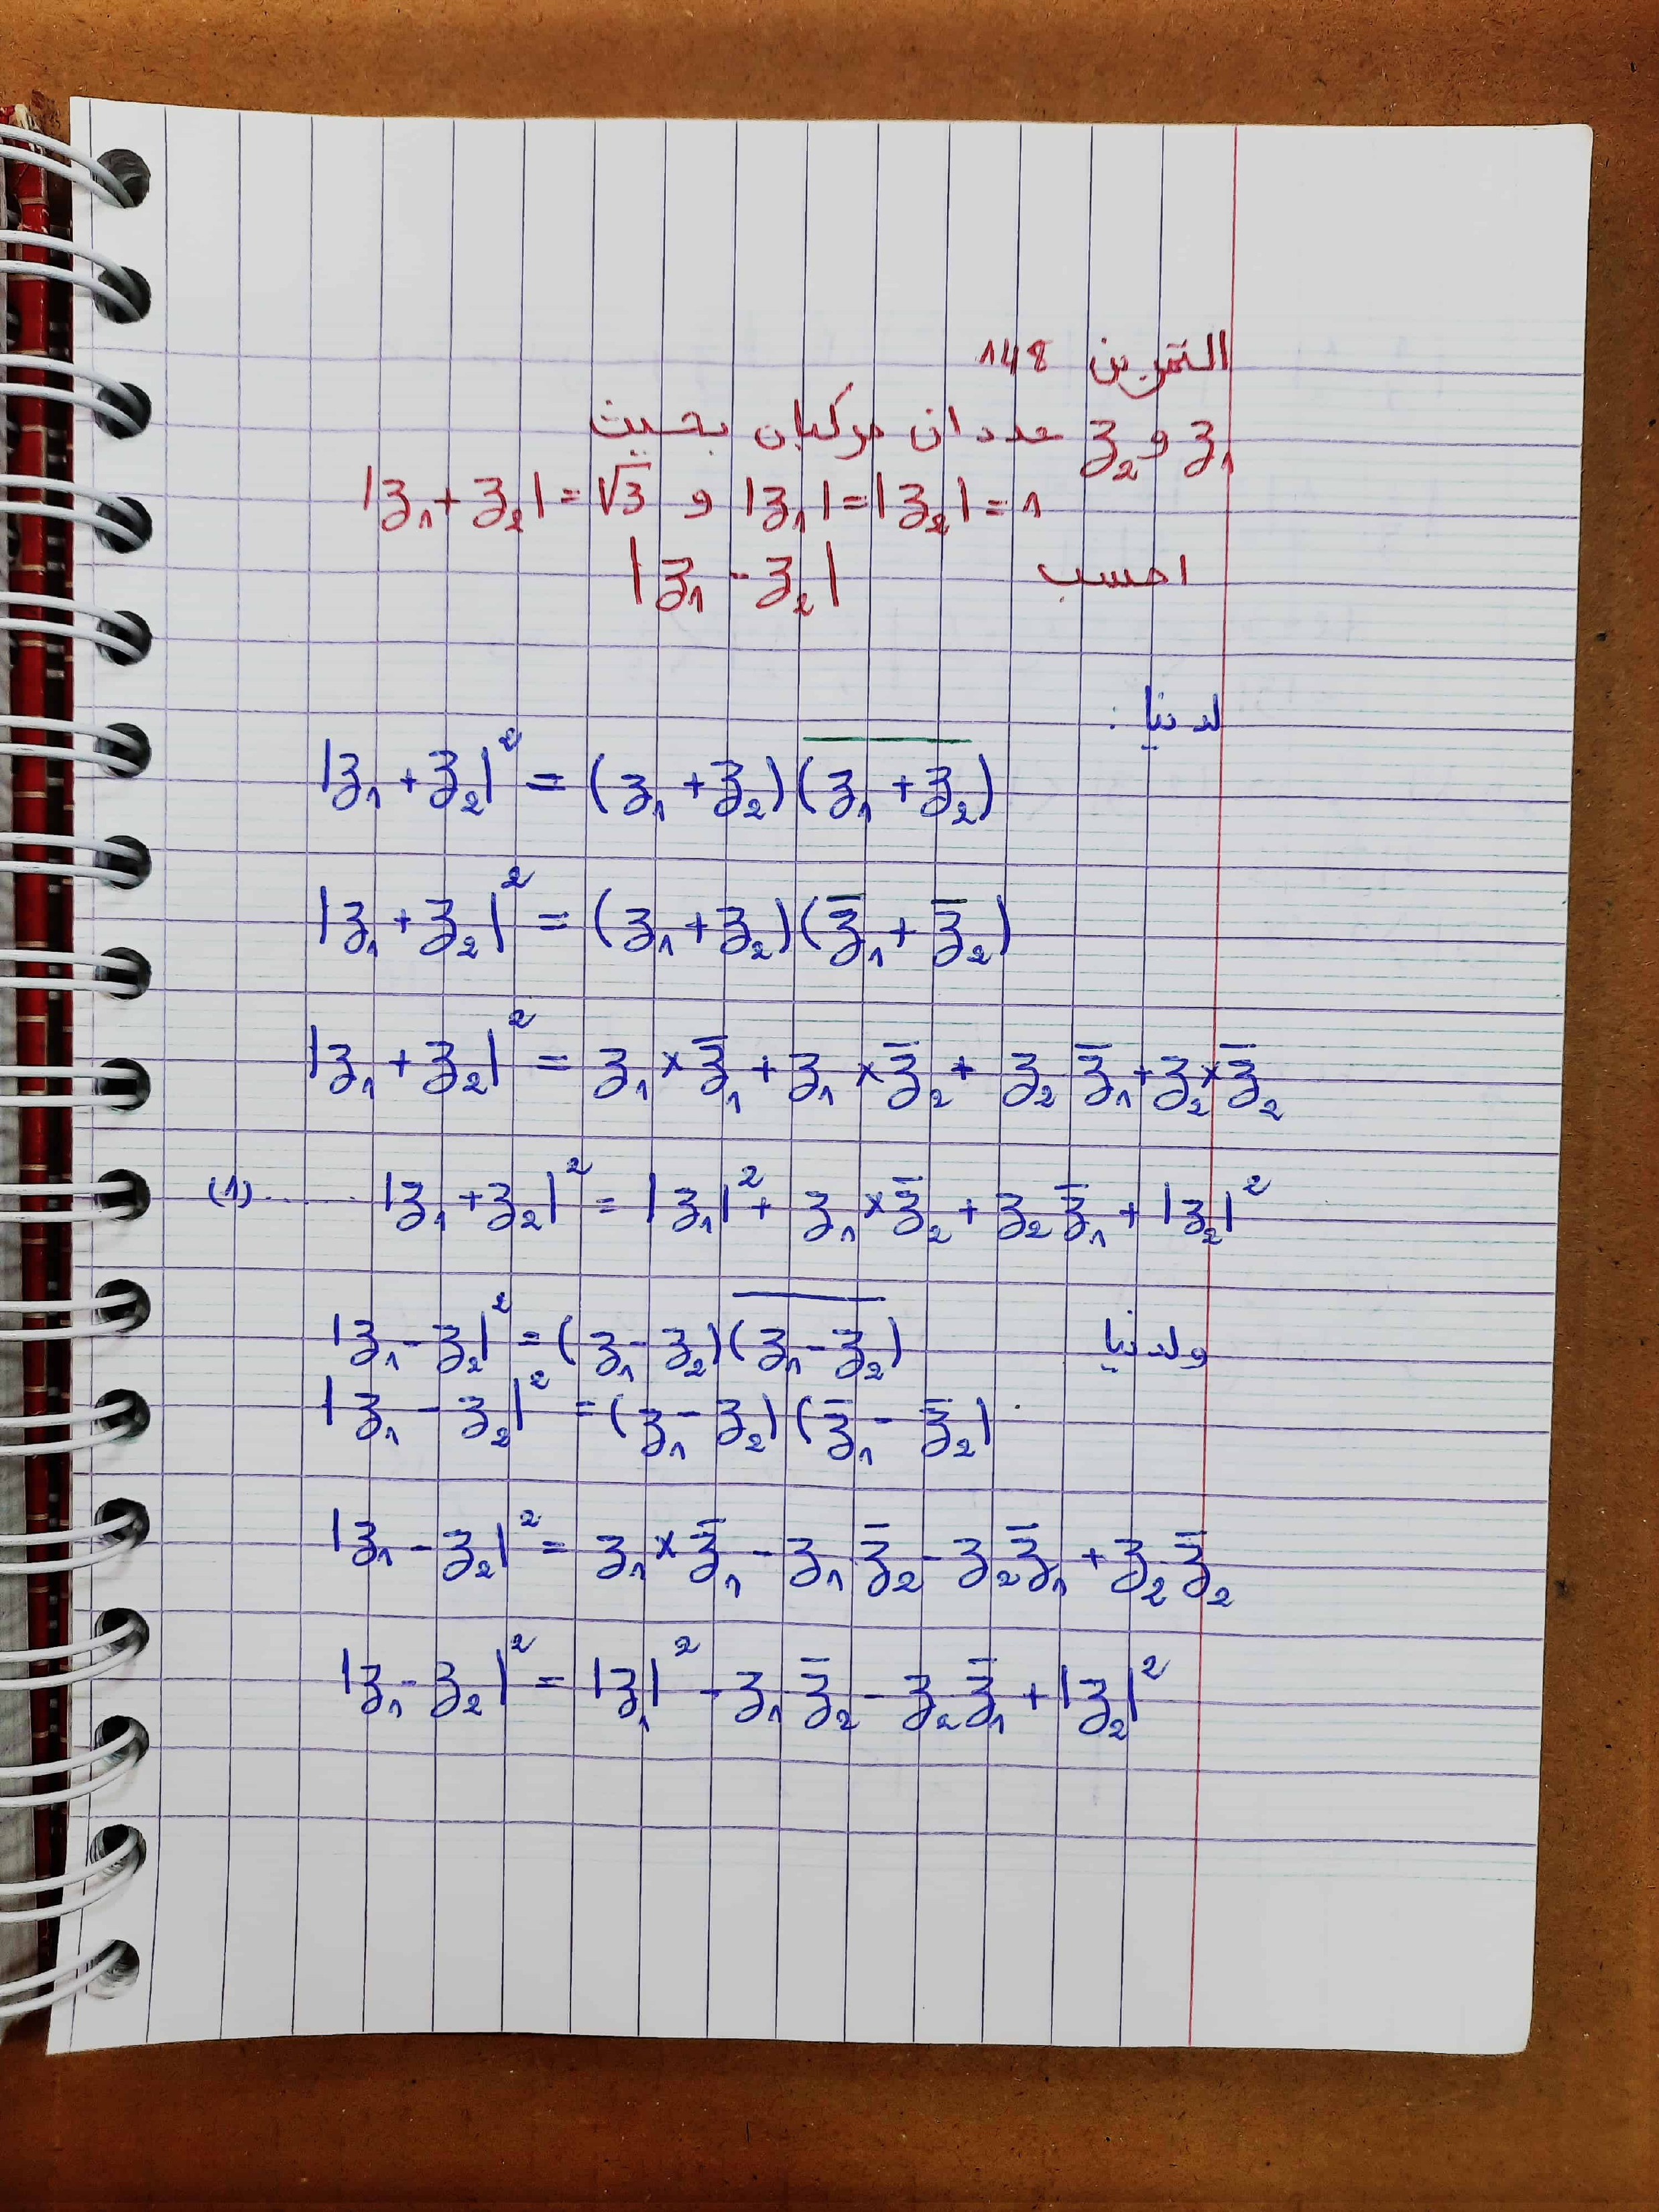 التمرين 148
z₁ و z₂ عددان مركبان بحيث
|z₁ + z₂| = √3 و |z₁| = |z₂| = 1
احسب |z₁ - z₂|
لدينا :
|z₁ + z₂|² = (z₁ + z₂)(z̅₁̅ ̅+̅ ̅z̅₂̅)
|z₁ + z₂|² = (z₁ + z₂)(z̄₁ + z̄₂)
|z₁ + z₂|² = z₁ × z̄₁ + z₁ × z̄₂ + z₂ z̄₁ + z₂ × z̄₂
(1)...... |z₁ + z₂|² = |z₁|² + z₁ × z̄₂ + z₂ z̄₁ + |z₂|²
ولدينا |z₁ - z₂|² = (z₁ - z₂)(z̅₁̅ ̅-̅ ̅z̅₂̅)
|z₁ - z₂|² = (z₁ - z₂)(z̄₁ - z̄₂)
|z₁ - z₂|² = z₁ × z̄₁ - z₁ z̄₂ - z₂ z̄₁ + z₂ z̄₂
|z₁ - z₂|² = |z₁|² - z₁ z̄₂ - z₂ z̄₁ + |z₂|²